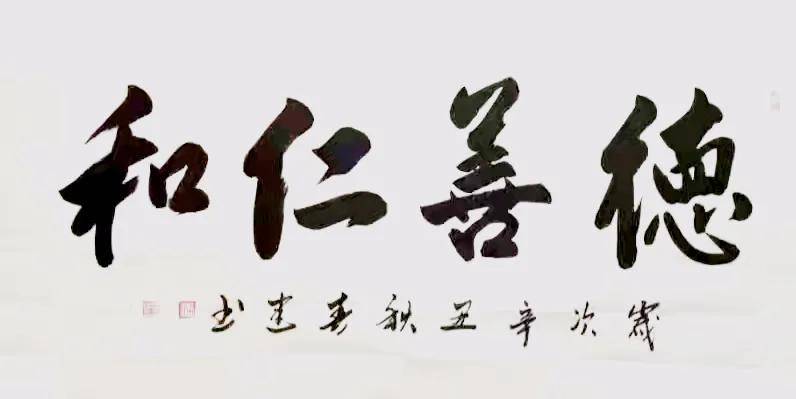 德善仁和
岁次辛丑秋春建书